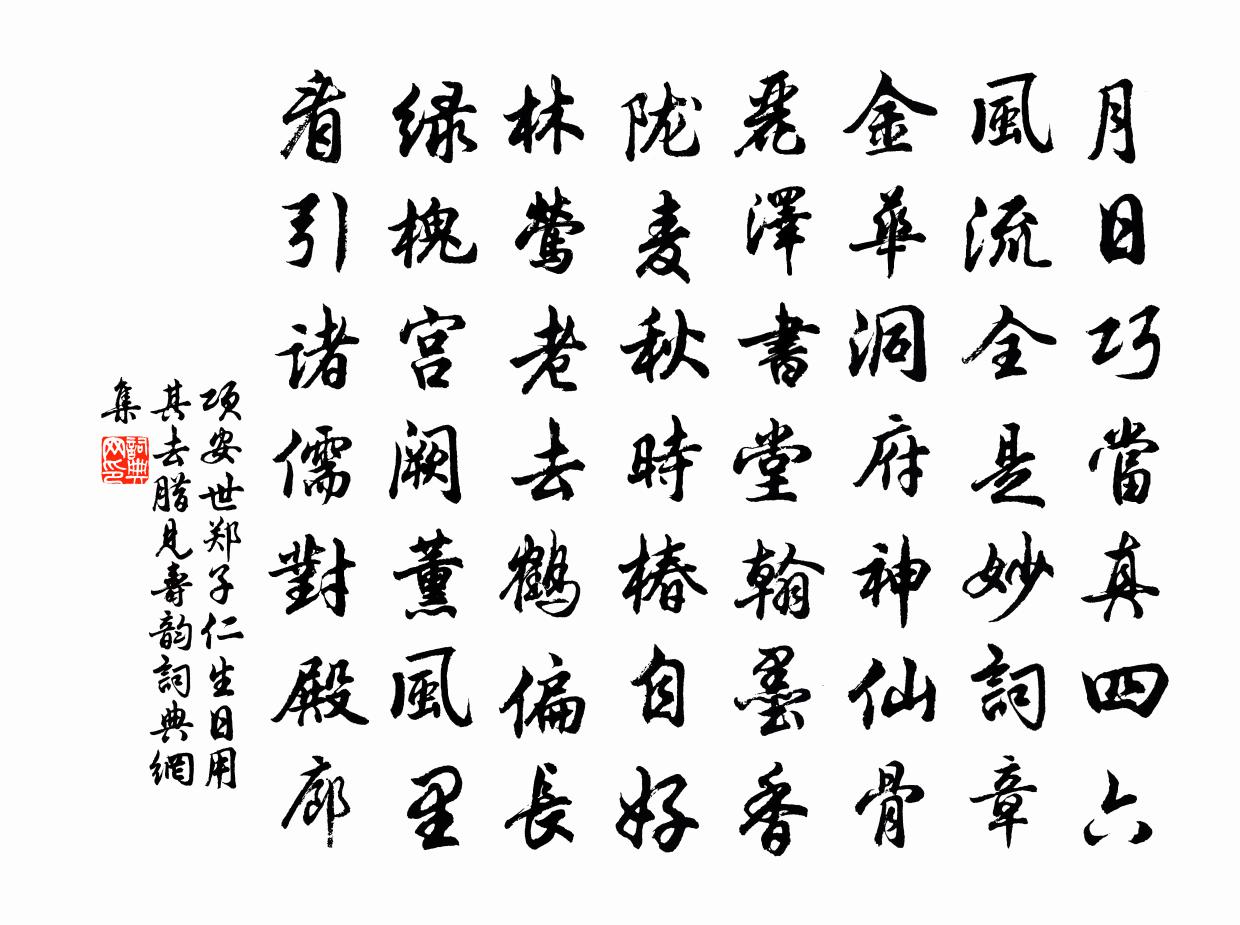 月日巧當真四六
風流全是妙詞章
金華洞府神仙骨
麗澤書堂翰墨香
陇麦秋時椿自好
林莺老去鹤偏長
绿槐宫阙薰風里
看引诸儒對殿廊
项安世郑子仁生日用
其去腊見壽韵詞典網
集
詞典
网印